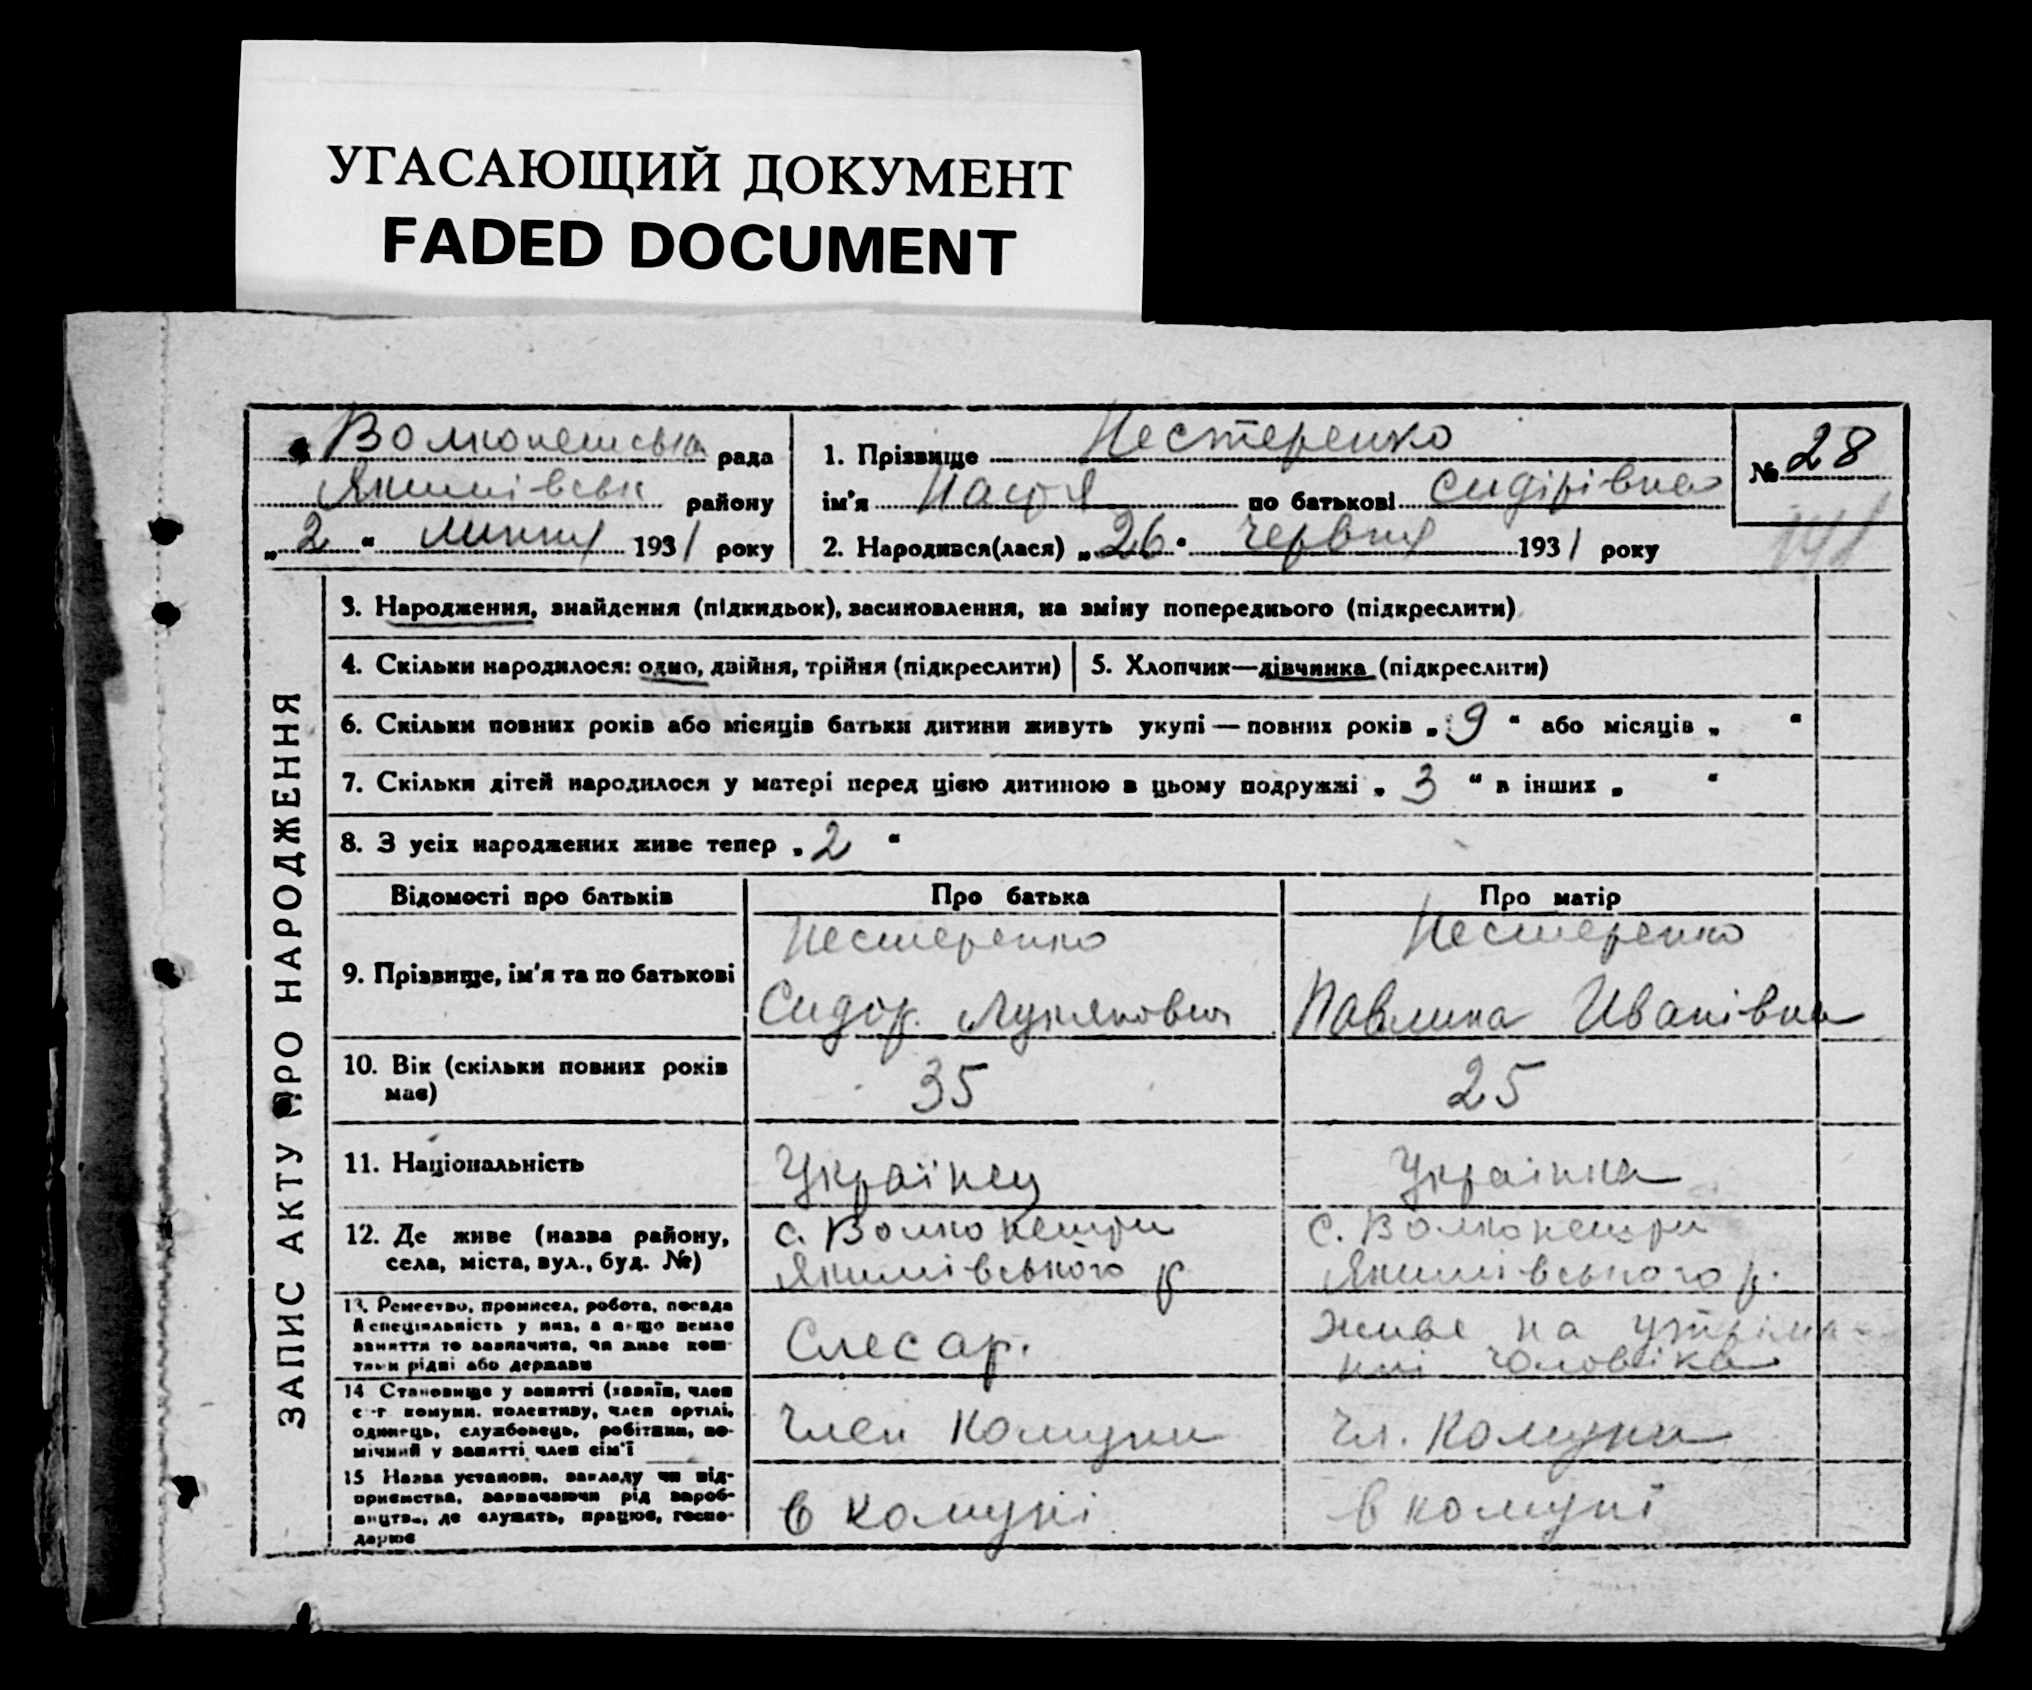 УГАСАЮЩИЙ ДОКУМЕНТ
FADED DOCUMENT
Волконешська рада
Якимівськ району
„ 2 “ липня 1931 року
1. Прізвище Нестеренко
ім'я Настя по батькові Сидірівна
2. Народився(лася) „ 26 “ червня 1931 року
№ 28
141
ЗАПИС АКТУ ПРО НАРОДЖЕННЯ
3. Народження, знайдення (підкидьок), засиновлення, на зміну попереднього (підкреслити)
4. Скільки народилося: одно, двійня, трійня (підкреслити)
5. Хлопчик—дівчинка (підкреслити)
6. Скільки повних років або місяців батьки дитини живуть укупі — повних років „ 9 “ або місяців „ “
7. Скільки дітей народилося у матері перед цією дитиною в цьому подружжі „ 3 “ в інших „ “
8. З усіх народжених живе тепер „ 2 “
Відомості про батьків
Про батька
Про матір
9. Прізвище, ім'я та по батькові
Нестеренко
Сидор Лукянович
Нестеренко
Павлина Иванівна
10. Вік (скільки повних років
має)
35
25
11. Національність
Українец
Украінка
12. Де живе (назва району,
села, міста, вул., буд. №)
с. Волконешти
Якимівського р
с. Волконешти
Якимівського р.
13. Ремество, промисел, робота, посада
й спеціяльність у них, а якщо немає
заняття то зазначити, чи живе кош-
тами рідні або держави
Слесар.
живе на утріма-
нні чоловіка
14 Становище у занятті (хазяїн, член
с.-г комуни, колективу, член артілі,
одинець, службовець, робітник, по-
мічний у занятті член сім'ї
Член комуни
Чл. комуни
15 Назва установи, закладу чи під-
приємства, зазначаючи рід вироб-
ництва, де служить, працює, госпо-
дарює
в комуні
в комуні